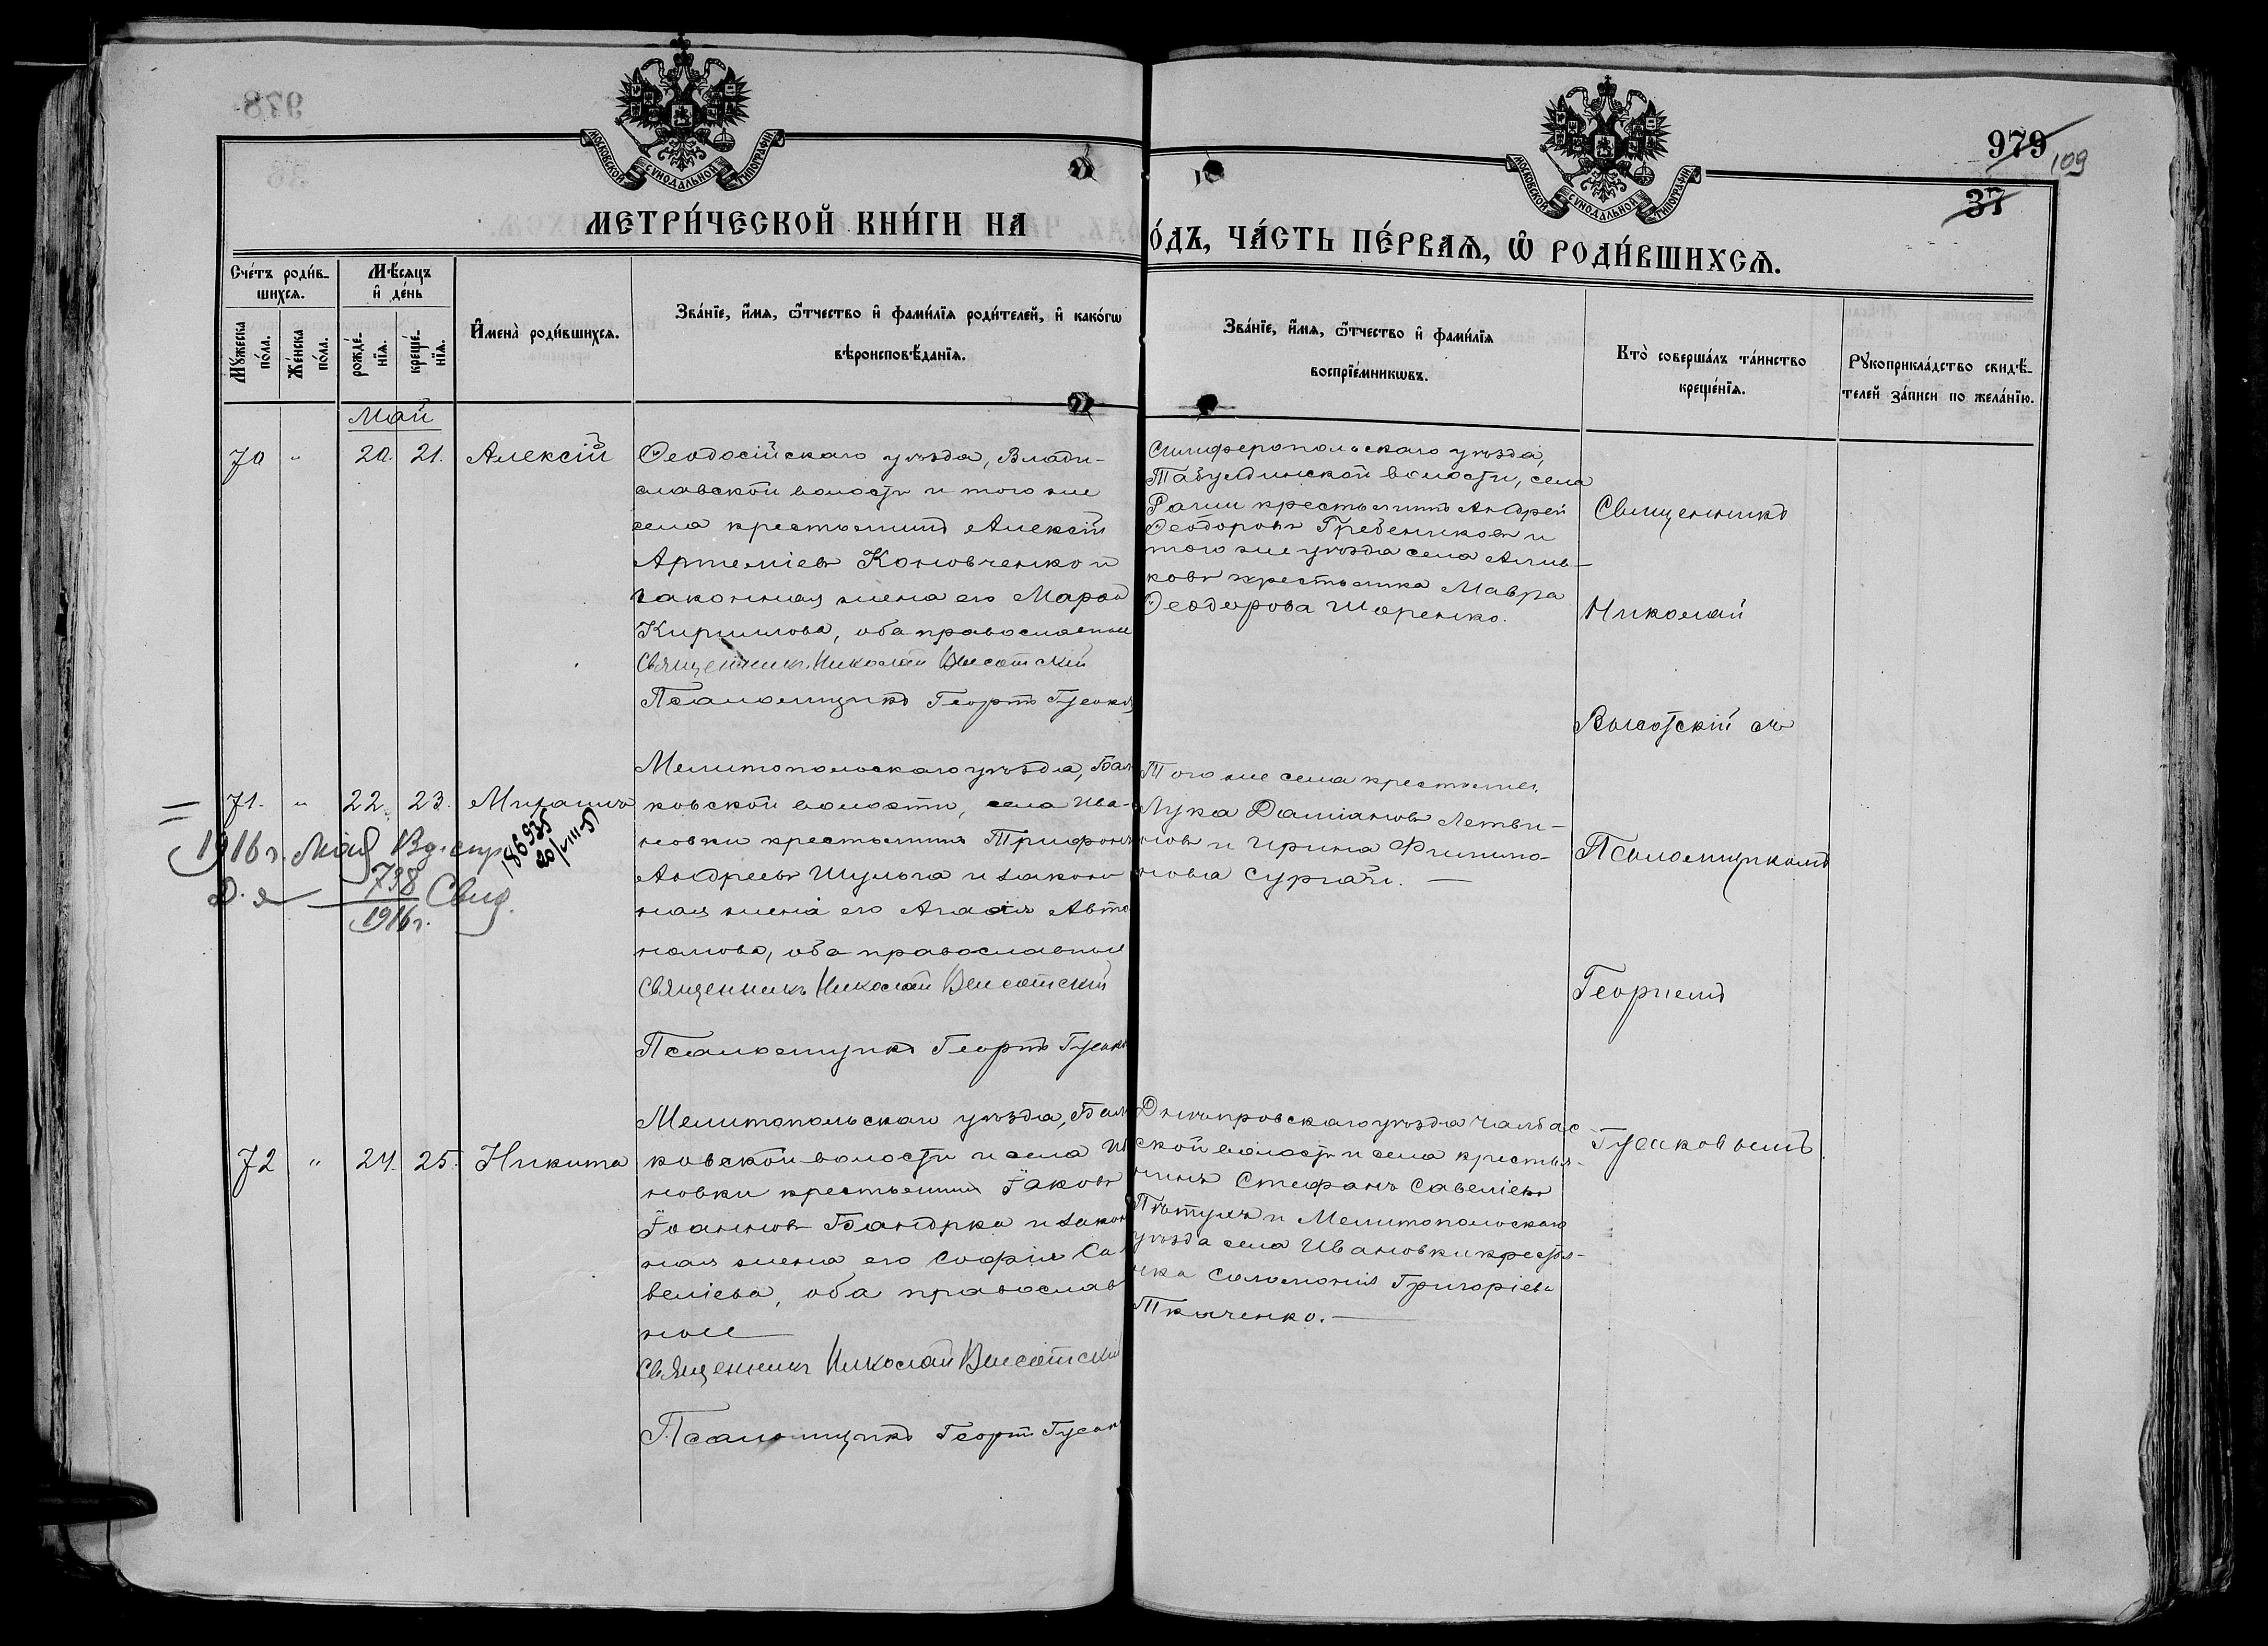 979
109
37
МОСКОВСКОЙ СѴНОДАЛЬНОЙ ТИПОГРАФІИ
МОСКОВСКОЙ СѴНОДАЛЬНОЙ ТИПОГРАФІИ
МЕТРИ́ЧЕСКОЙ КНИ́ГИ НА
О́ДЪ, ЧА́СТЬ ПЕ́РВАѦ, Ѡ҆ РОДИ́ВШИХСѦ.
Сче́тъ роди́в-
шихсѧ.
Мѣ́сѧцъ
и҆ де́нь
Мꙋ́жеска
по́ла.
Же́нска
по́ла.
рожде́-
нїѧ.
креще́-
нїѧ.
И҆мена̀ роди́вшихсѧ.
Зва́нїе, и҆́мѧ, ѻ҆́тчество и҆ фами́лїѧ роди́телей, и҆ како́гѡ
вѣроисповѣ́данїѧ.
Зва́нїе, и҆́мѧ, ѻ҆́тчество и҆ фами́лїѧ
воспрїе́мникѡвъ.
Кто̀ соверша́лъ та́инство
креще́нїѧ.
Рꙋкоприкла́дство свидѣ́-
телей за́писи по жела́нїю.
Май
70 " 20. 21. Алексій
Ѳеодосійскаго уѣзда, Влади-
славской волости и того же
села крестьянинъ Алексій
Артеміевъ Коновченко и
законная жена его Марѳа
Кириллова, оба православные
Священникъ Николай Высотскій
Псаломщикъ Георгій Гусаков
Симферопольскаго уѣзда,
Табулдинской волости, села
крестьянинъ Андрей
Ѳеодоровъ Гребениковъ и
того же уѣзда села
ковъ крестьянка Мавра
Ѳеодорова Шоренко.
Священникъ
Николай
Высотскій съ
Псаломщикомъ
Георгіемъ
Гусаковымъ
71. " 22. 23. Михаилъ
1916 г. Май
738
1916 г.
Свид.
186935
20/VIII-51
Мелитопольскаго уѣзда, Бал
ковской волости, села Ива-
новки крестьянинъ Трифонъ
Андреевъ Шульга и закон
ная жена его Агаѳія Авто
номова, оба православные
Священникъ Николай Высотскій
Псаломщикъ Георгій Гусак
Того же села крестьяне
Лука Даміановъ Летви-
новъ и Ирина Филипо-
нова Сургай. —
72 " 24. 25. Никита
Мелитопольскаго уѣзда, Бал
ковской волости и села Ив
новки крестьянинъ Іаковъ
Іоанновъ Бандрка и закон
ная жена его Софія Са
веліева, оба православ
ные
Священникъ Николай Высотскій
Псаломщикъ Георгій Гусак
Днѣпровскаго уѣзда Чалбас
ской волости и села крестья-
нинъ Стефанъ Савеліевъ
Пѣтухъ и Мелитопольскаго
уѣзда села Ивановки крестья-
нка Соломонія Григоріева
Ткаченко. —